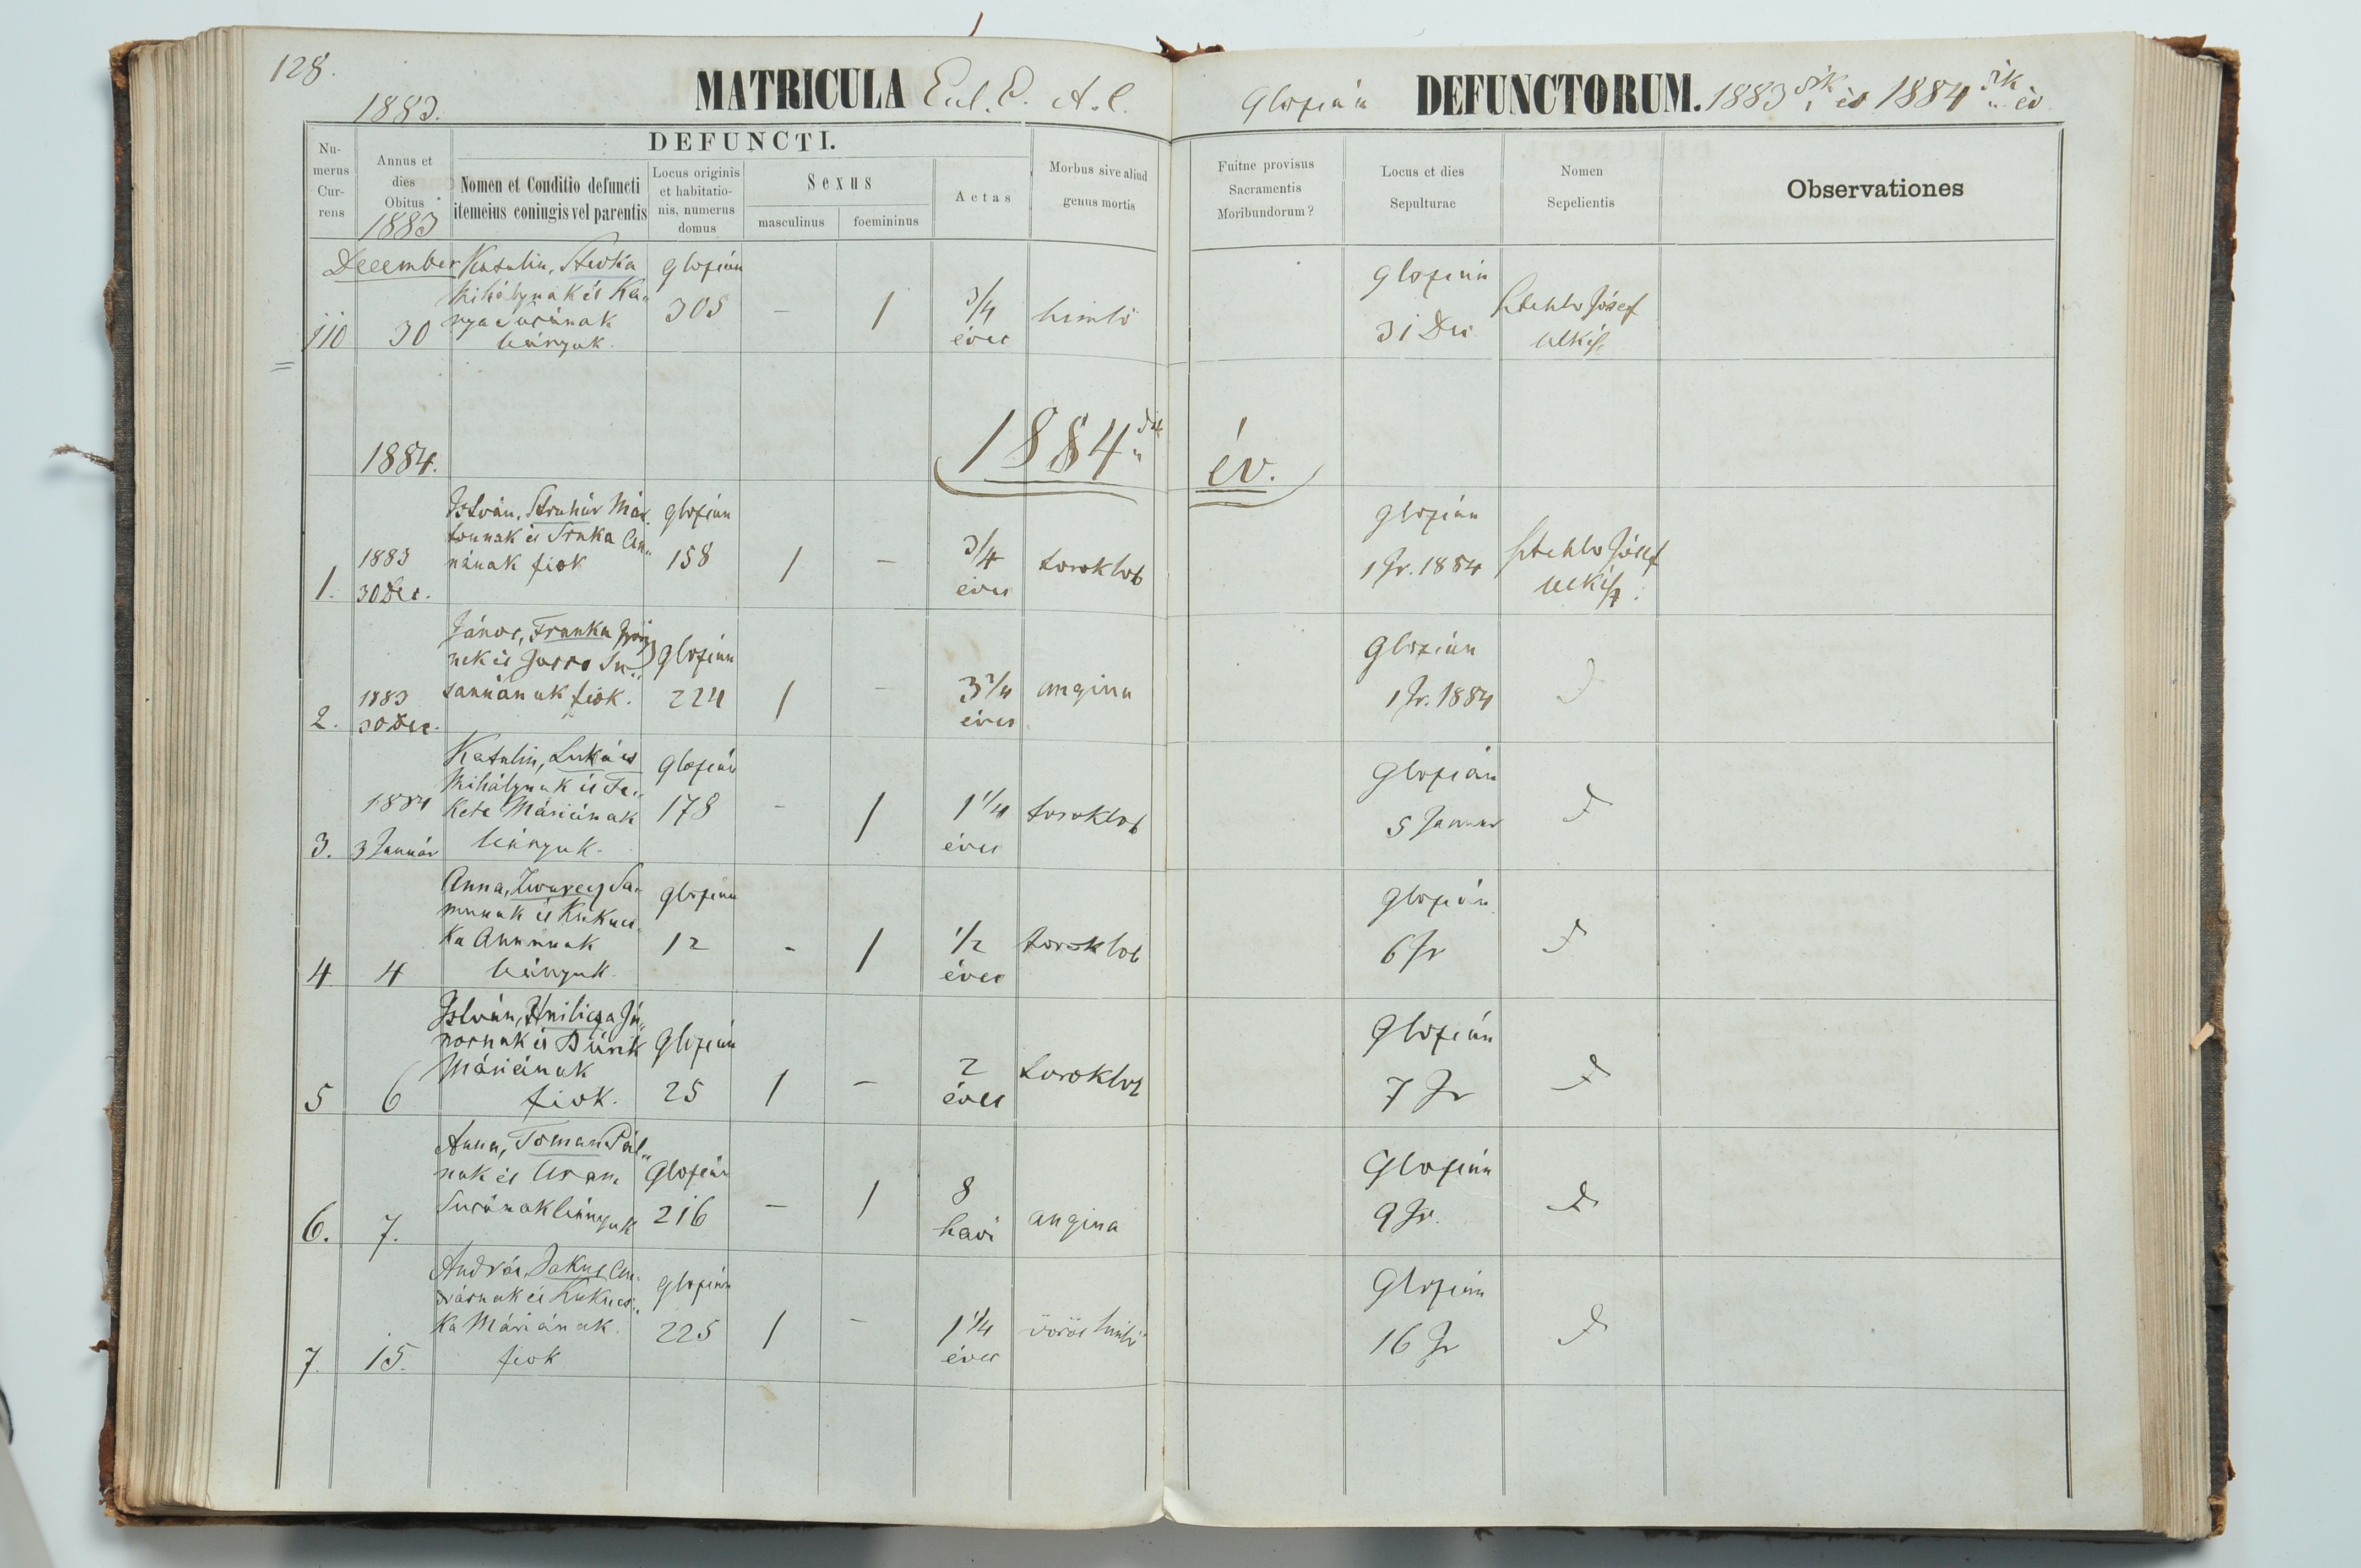 128.
1883.
MATRICULA Eccl. E. A. C.
Glozsán DEFUNCTORUM. 1883 dik és 1884 dik év
DEFUNCTI.
Nu-
merus
Cur-
rens
Annus et
dies
Obitus
1883
Nomen et Conditio defuncti
itemeius coniugis vel parentis
Locus originis
et habitatio-
nis, numerus
domus
Sexus
masculinus
foemininus
Aetas
Morbus sive aliud
genus mortis
Fuitne provisus
Sacramentis
Moribundorum?
Locus et dies
Sepulturae
Nomen
Sepelientis
Observationes
December
110
30
Katalin,
Mihálynak és
leányuk.
Glozsán
305
-
1
3/4
éves
himlő
Glozsán
31 Dec
Stehlo József
lelkész
1884.
1884 dik
év.
1.
1883
30 Dec.
István, Struhár Már-
tonnak és Srnka An-
nának fiok
Glozsán
158
1
-
3/4
éves
toroklob
Glozsán
1 Jr. 1884
Stehlo József
lelkész.
2.
1883
30 Dec.
János, Franka
nek és
sannának fiok.
Glozsán
224
1
-
3 3/4
éves
angina
Glozsán
1 Jr. 1884
3.
1884
3 Január
Katalin, Lukács
Mihálynak és Fe-
kete Máriának
leányuk.
Glozsán
178
-
1
1 1/4
éves
toroklob
Glozsán
5 Januar
4
4
Anna, Sa-
munak és Kukucs-
ka Annának
leányuk.
Glozsán
12
-
1
1/2
éves
toroklob
Glozsán
6 Jr
5
6
István, Hnilicza Já-
nosnak és
Máriának
fiok.
Glozsán
25
1
-
2
éves
toroklob
Glozsán
7 Jr
6.
7.
Anna, Toman Pál-
nak és
Susának leányuk
Glozsán
216
-
1
8
havi
angina
Glozsán
9 Jr.
7.
15.
András, Jakus An-
drásnak és Kukucs-
ka Máriának
fiok
Glozsán
225
1
-
1 1/4
éves
vörös himlő
Glozsán
16 Jr